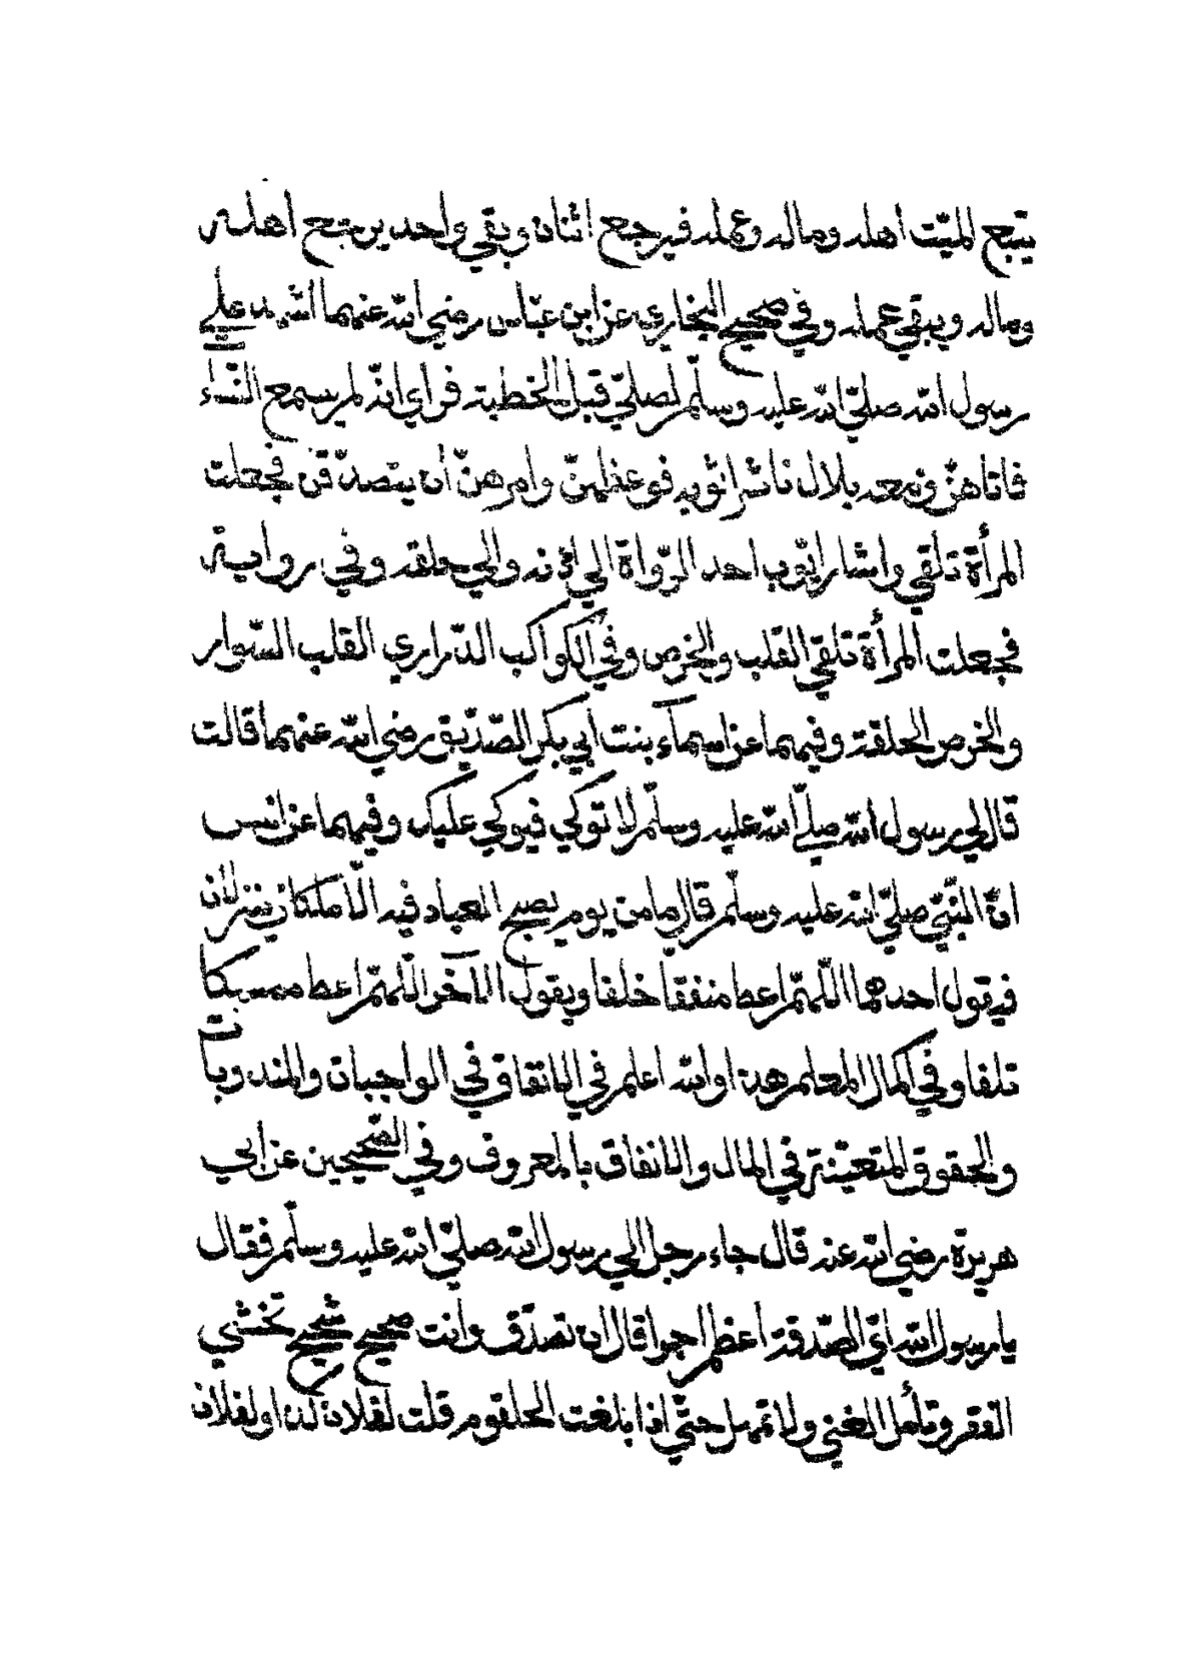 يتبع الميّت اهله وماله وعمله فيرجع اثنان وبقي واحد يرجع اهله
وماله ويبقي عمله وفي صحيح البخاري عن ابن عبّاس رضي الله عنهما اشهد علي
رسول الله صلّي الله عليه وسلّم لصلّي قبل الخطبة فراي انّه لم يسمع النّساء
فاتاهنّ ومعه بلال ناشر ثوبه فوعظهنّ وامرهنّ أن يتصدّقن فجعلت
المرأة تلقي واشار ايّوب احد الرّواة الي اذنه والي حلقه وفي رواية
فجعلت المرأة تلقي القلب والخرص وفي الكواكب الدّراري القلب السّوار
والخرص الحلقة وفيهما عن اسمآء بنت ابي بكر الصّدّيق رضي الله عنهما قالت
قال لي رسول الله صلّي الله عليه وسلّم لا توكي فيوكي عليك وفيهما عن انس
انّ النّبيّ صلّي الله عليه وسلّم قال ما من يوم يصبح العباد فيه الّا ملكان ينزلان
فيقول احدهما اللّهمّ اعط منفقا خلفا ويقول الآخر اللّهمّ اعط ممسكا
تلفا وفي اكمال المعلم هذا والله اعلم في الانفاق في الواجبات والمندوبات
والحقوق المتعيّنة في المال والانفاق بالمعروف وفي الصّحيحين عن ابي
هريرة رضي الله عنه قال جاء رجل الي رسول الله صلّي الله عليه وسلّم فقال
يا رسول الله ايّ الصّدقة اعظم اجرا قال ان تصدّق وانت صحيح شحيح تخشي
الفقر وتأمل الغني ولا تمهل حتّي اذا بلغت الحلقوم قلت لفلان كذا ولفلان